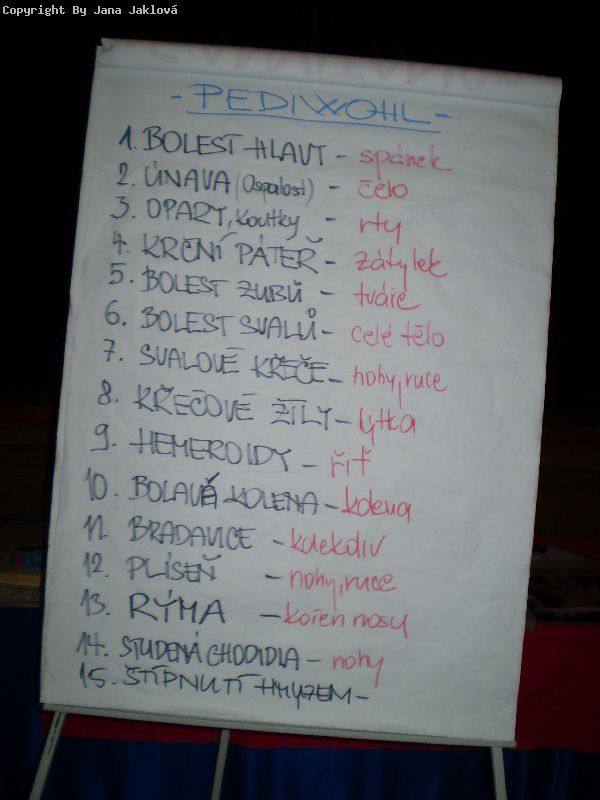 Copyright By Jana Jaklová
- PEDIWOHL -
1. BOLEST HLAVY - spánek
2. ÚNAVA (Ospalost) - čelo
3. OPARY, Koutky - rty
4. KRČNÍ PÁTEŘ - zátylek
5. BOLEST ZUBŮ - tváře
6. BOLEST SVALŮ - celé tělo
7. SVALOVÉ KŘEČE - nohy, ruce
8. KŘEČOVÉ ŽÍLY - lýtka
9. HEMEROIDY - řiť
10. BOLAVÉ KOLENA - kolena
11. BRADAVICE - kdekoliv
12. PLÍSEŇ - nohy, ruce
13. RÝMA - kořen nosu
14. STUDENÁ CHODIDLA - nohy
15. ŠTÍPNUTÍ HMYZEM -